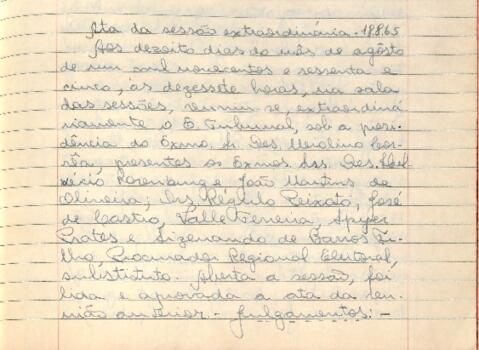 Ata da sessão extraordinária - 18.8.65
Aos dezoito dias do mês de agôsto
de um mil novecentos e sessenta e
cinco, às dezessete horas, na sala
das sessões, reuniu-se, extraordiná-
riamente o E. Tribunal, sob a presi-
dência do Exmo. Sr. Des. Merolino Cor-
rêa, presentes os Exmos. Srs. Des. Hel-
vécio Rosenburg e João Martins de
Oliveira; Drs. Régulo Peixoto, José
de Castro, Valle Ferreira, Spyer
Prates e Sizenando de Barros Fi-
lho, Procurador Regional Eleitoral,
substituto. Aberta a sessão, foi
lida e aprovada a ata da reu-
nião anterior. - Julgamentos: -